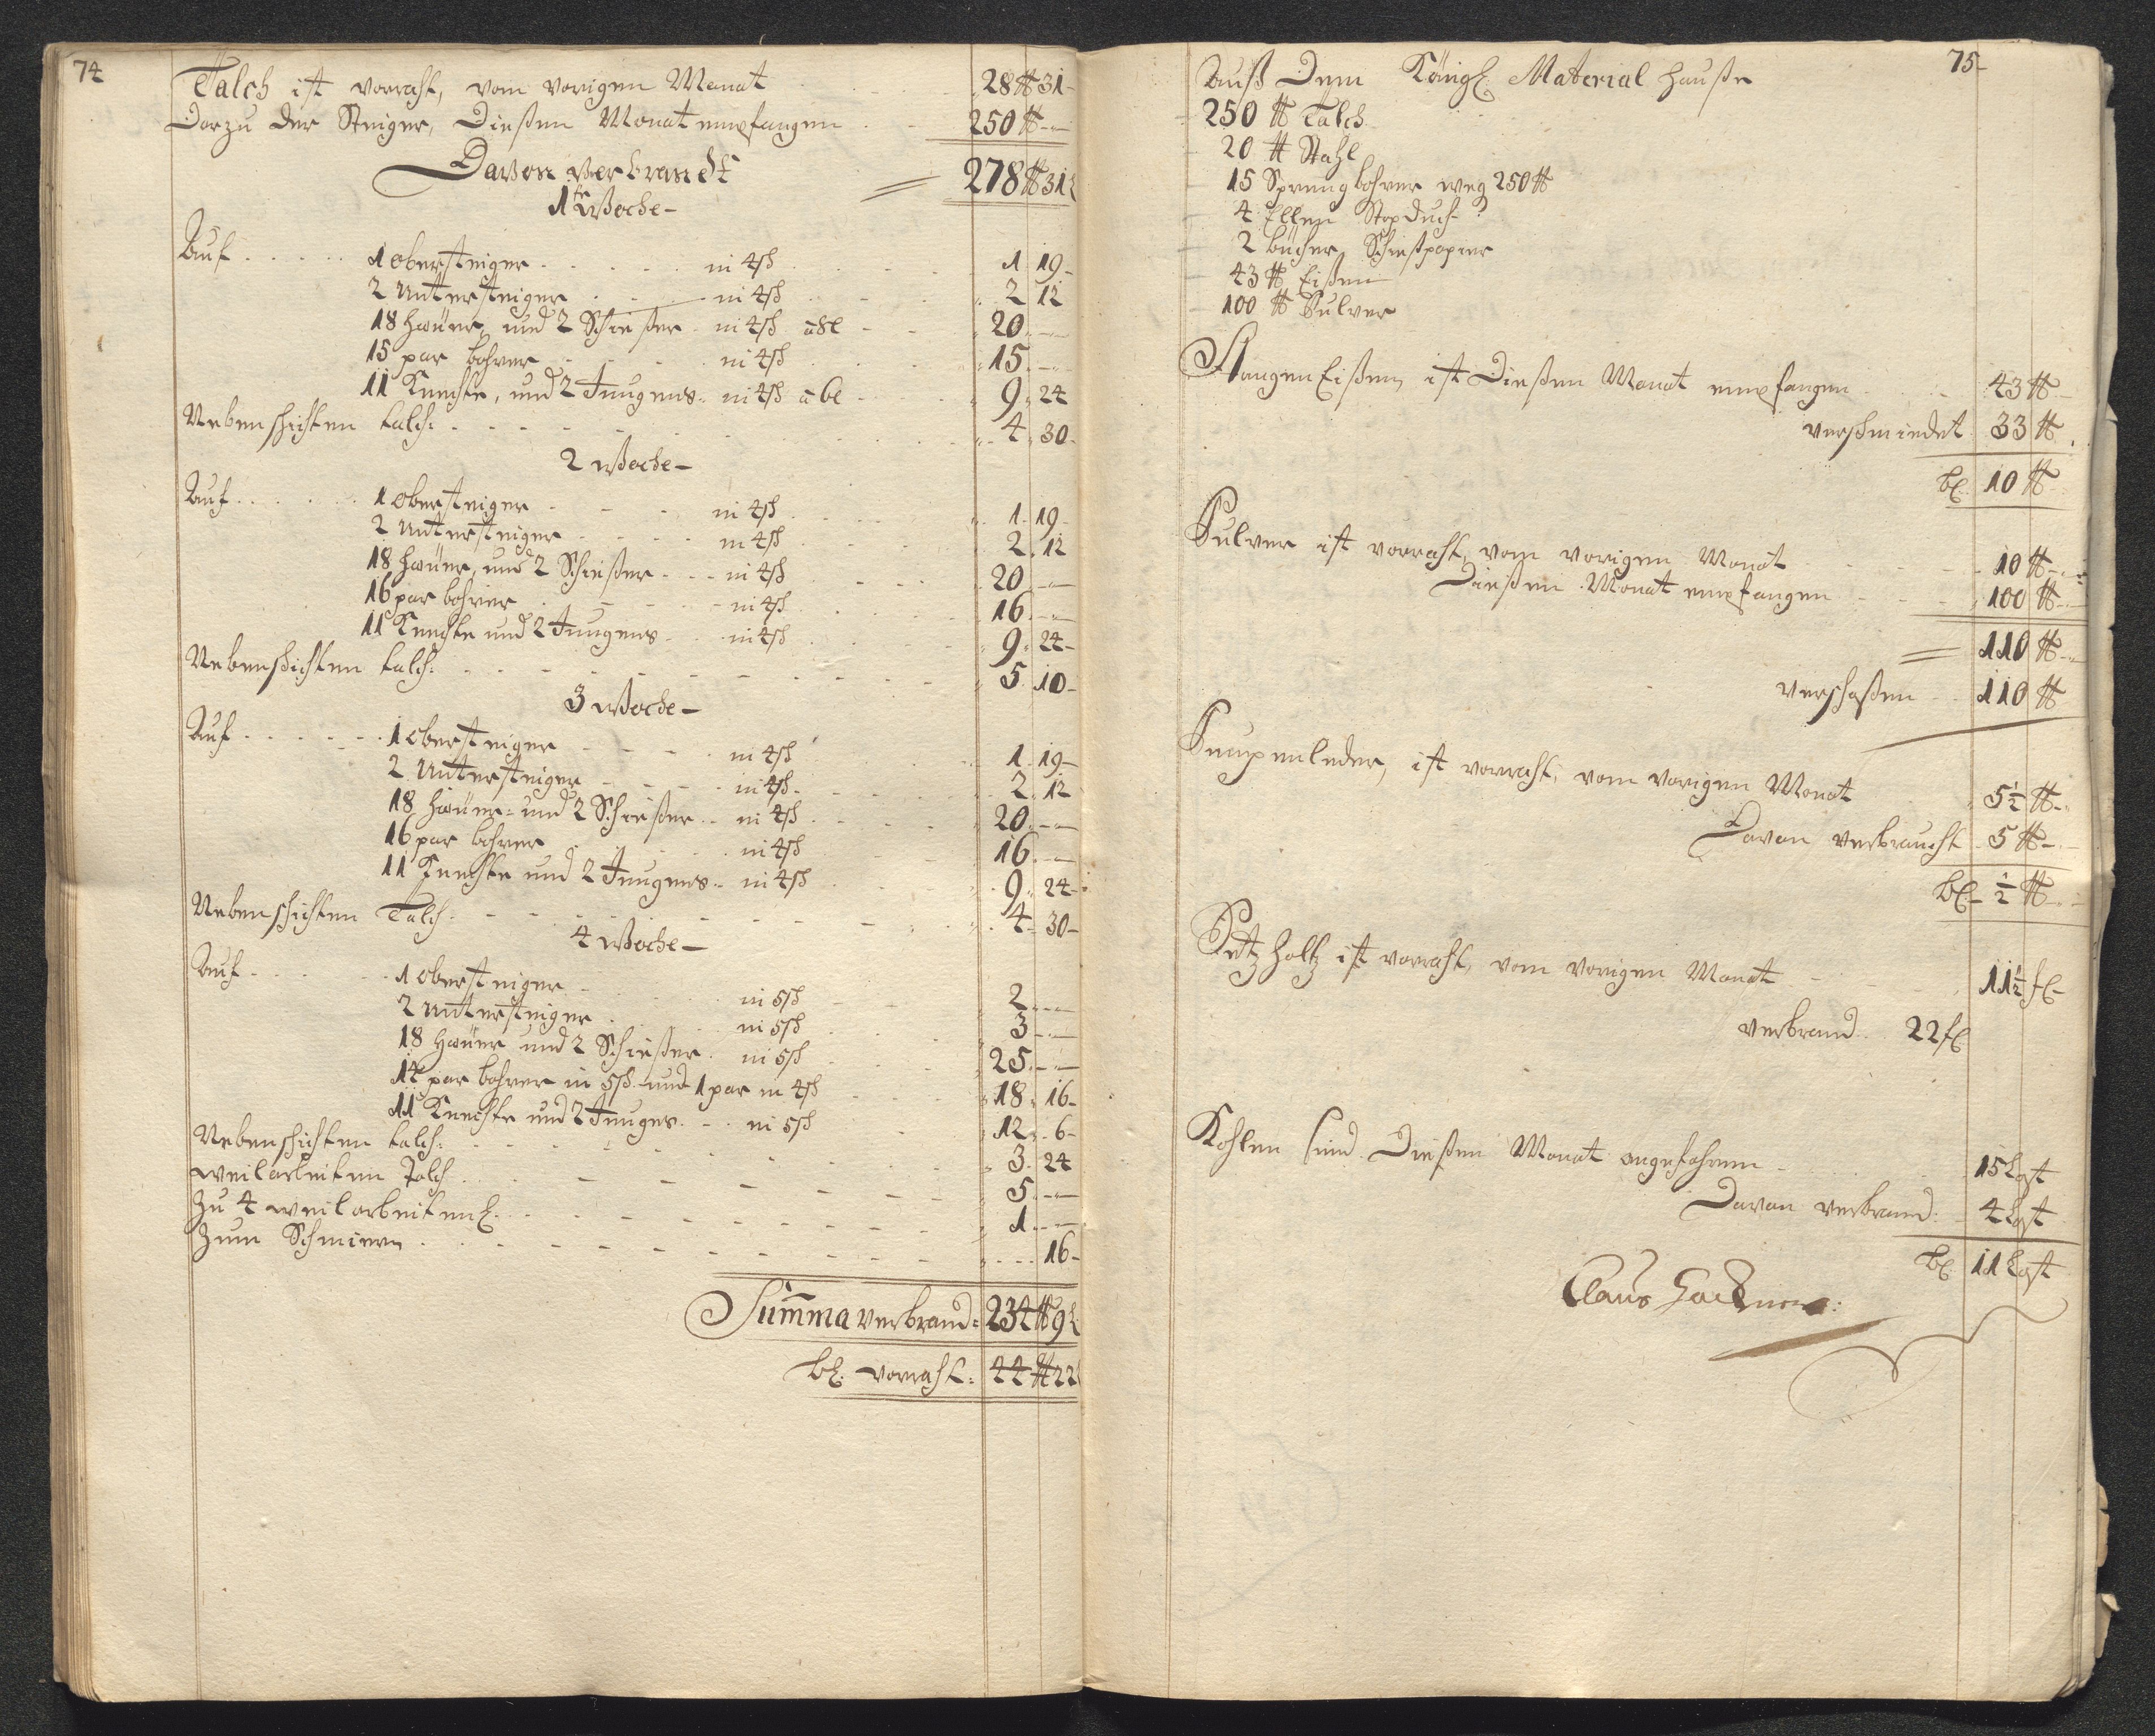 74
Talch ist vorraht, vom vorigen Monat 28 ℔ 31
Darzu der Steiger, Dießen Monat empfangen 250 ℔
Davon verbrandt 278 ℔ 31
1te Woche
Auf 1 obersteiger in 4 sch 1 19
2 Untersteiger in 4 sch 2 12
18 Häüer, und 2 Schießer in 4 sch à 8l 20
15 par bohrer in 4 sch 15
11 Knechte, und 2 Jungens in 4 sch à 6l 9 24
Nebenschichten talch: 4 30
2 Woche
Auf 1 obersteiger in 4 sch 1 19
2 Untersteiger in 4 sch 2 12
18 Häüer, und 2 Schießer in 4 sch 20
16 par bohrer in 4 sch 16
11 Knechte und 2 Jungens in 4 sch 9 24
Nebenschichten talch: 5 10
3 Woche
Auf 1 obersteiger in 4 sch 1 19
2 Untersteiger in 4 sch 2 12
18 Häüer und 2 Schießer in 4 sch 20
16 par bohrer in 4 sch 16
11 Knechte und 2 Jungens in 4 sch 9 24
Nebenschichten Talch 4 30
4 Woche
Auf 1 obersteiger in 5 sch 2
2 Untersteiger in 5 sch 3
18 Häüer und 2 Schießer in 5 sch 25
14 par bohrer in 5 sch und 1 par in 4 sch 18 16
11 Knechte und 2 Junges in 5 sch 12 6
Nebenschichten talch: 3 24
weilarbeiten Talch 5
Zu 4 weilarbeiten 1
Zum Schmieren 16
Summa verbrand: 234 ℔ 9
bl. vorraht: 44 ℔ 22
75
Auß Dem Königl. Material Hauße
250 ℔ Talch
20 ℔ Stahl
15 Sprengbohrer weg 250 ℔
4 Ellen Stopduch
2 bücher Schießpapier
43 ℔ Eißen
100 ℔ Pulver
Stangen Eißen, ist Dießen Monat empfangen 43 ℔
verschmiedet 33 ℔
bl. 10 ℔
Pulver ist vorraht, vom vorigen Monat 10 ℔
Dießen Monat empfangen 100 ℔
110 ℔
verschoßen 110 ℔
Pumpenleder, ist vorraht, vom vorigen Monat 5½ ℔
Davon verbraucht 5 ℔
bl. ½ ℔
Setzholtz ist vorraht, vom vorigen Monat 11½ fl
verbrand 22 fl
Kohlen sind Dießen Monat angefahren 15 Last
Davon verbrand: 4 Last
bl. 11 Last
Claus